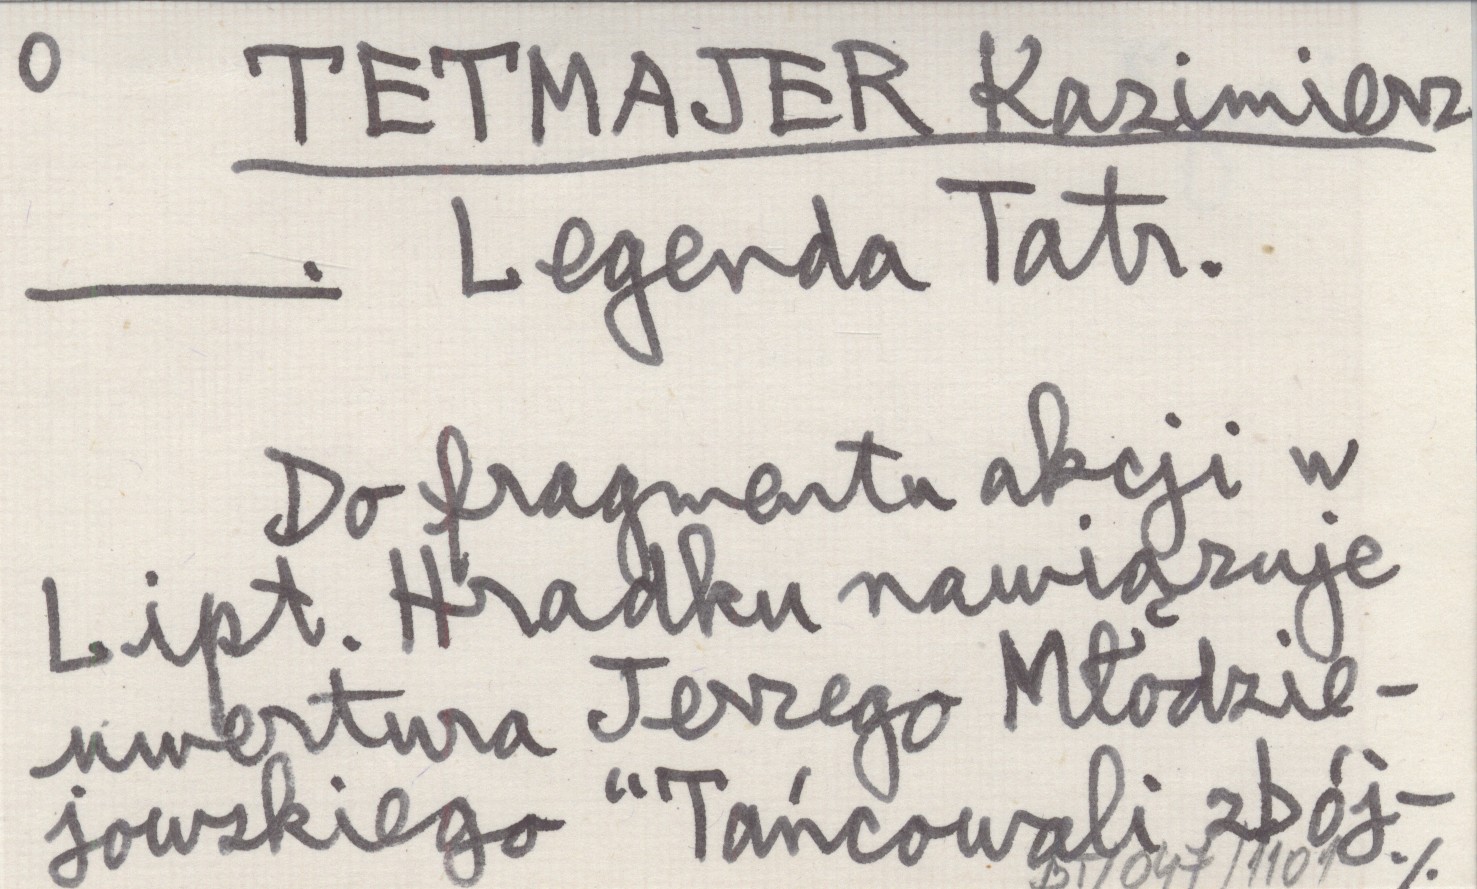 O TETMAJER Kazimierz
. Legenda Tatr.
Do fragmentu akcji w
Lipt. Hradku nawiązuje
uwertura Jerzego Młodzie-
jowskiego "Tańcowali zbój-
BT/047/1101 ./.